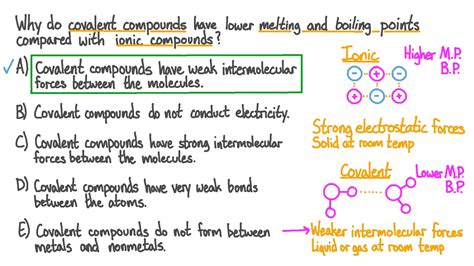 Why do covalent compounds have lower melting and boiling points
compared with ionic compounds?
✓A) Covalent compounds have weak intermolecular
forces between the molecules.
B) Covalent compounds do not conduct electricity.
C) Covalent compounds have strong intermolecular
forces between the molecules.
D) Covalent compounds have very weak bonds
between the atoms.
E) Covalent compounds do not form between
metals and nonmetals.
Ionic
Higher M.P.
B.P.
- + -
+ - +
Strong electrostatic forces
Solid at room temp
Covalent
Lower M.P.
B.P.
Weaker intermolecular forces
Liquid or gas at room temp